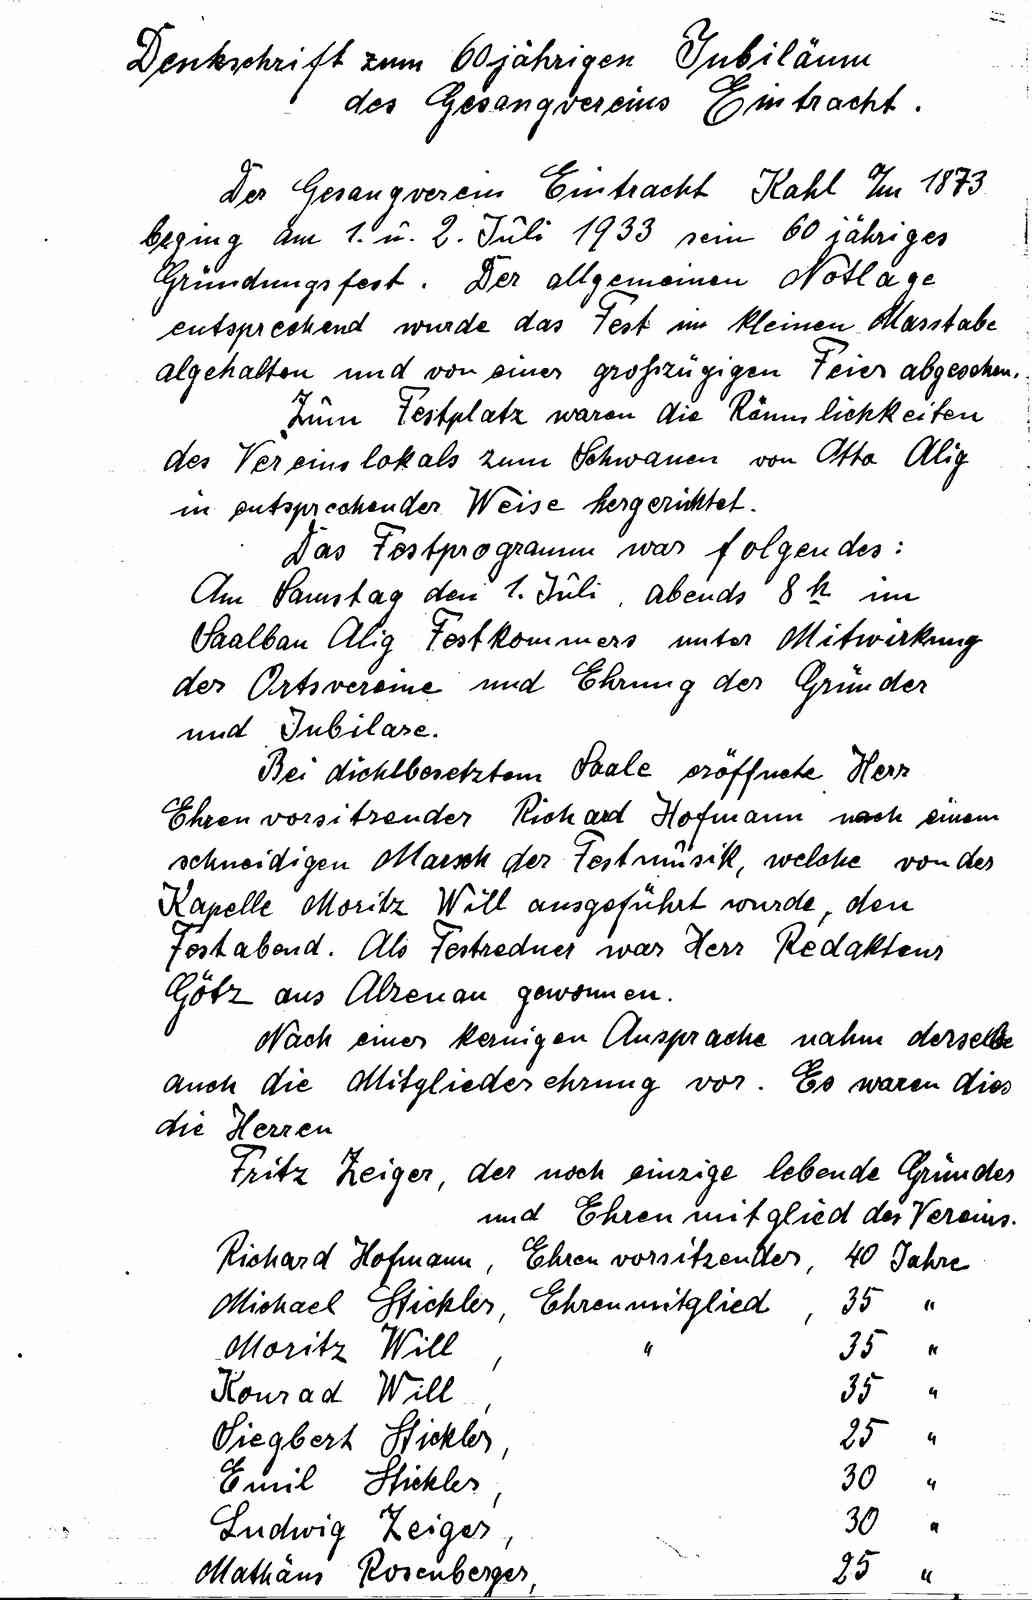 Denkschrift zum 60jährigen Jubiläum
des Gesangvereins Eintracht.
Der Gesangverein Eintracht Kahl /m 1873
beging am 1. u. 2. Juli 1933 sein 60 jähriges
Gründungsfest. Der allgemeinen Notlage
entsprechend wurde das Fest im kleinen Masstabe
abgehalten und von einer großzügigen Feier abgesehen.
Zum Festplatz waren die Räumlichkeiten
des Vereinslokals zum Schwanen von Otto Alig
in entsprechender Weise hergerichtet.
Das Festprogramm war folgendes:
Am Samstag den 1. Juli, abends 8 h im
Saalbau Alig Festkommers unter Mitwirkung
der Ortsvereine und Ehrung der Gründer
und Jubilare.
Bei dichtbesetztem Saale eröffnete Herr
Ehrenvorsitzender Richard Hofmann nach einem
schneidigen Marsch der Festmusik, welche von der
Kapelle Moritz Will ausgeführt wurde, den
Festabend. Als Festredner war Herr Redakteur
Götz aus Alzenau gewonnen.
Nach einer kernigen Ansprache nahm derselbe
auch die Mitgliederehrung vor. Es waren dies
die Herren
Fritz Zeiger, der noch einzige lebende Gründer
und Ehrenmitglied des Vereins.
Richard Hofmann, Ehrenvorsitzender, 40 Jahre
Michael Stickler, Ehrenmitglied, 35 "
Moritz Will, " 35 "
Konrad Will, 35 "
Siegbert Stickler, 25 "
Emil Stickler, 30 "
Ludwig Zeiger, 30 "
Mathäus Rosenberger, 25 "